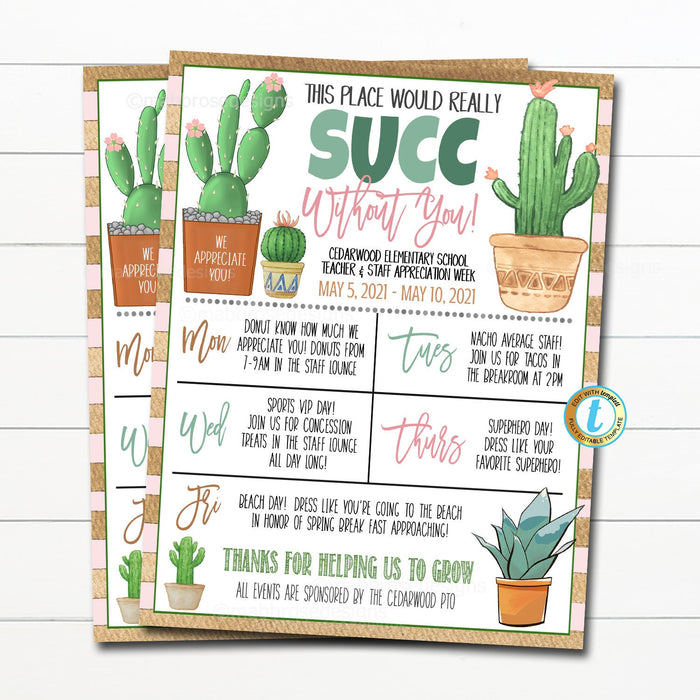 THIS PLACE WOULD REALLY
SUCC
Without You!
WE
APPRECIATE
YOU!
WE
APPRECIATE
YOU!
CEDARWOOD ELEMENTARY SCHOOL
TEACHER & STAFF APPRECIATION WEEK
MAY 5, 2021 - MAY 10, 2021
Mon
DONUT KNOW HOW MUCH WE
APPRECIATE YOU! DONUTS FROM
7-9AM IN THE STAFF LOUNGE
Tues
NACHO AVERAGE STAFF!
JOIN US FOR TACOS IN
THE BREAKROOM AT 2PM
Wed
SPORTS VIP DAY!
JOIN US FOR CONCESSION
TREATS IN THE STAFF LOUNGE
ALL DAY LONG!
Thurs
SUPERHERO DAY!
DRESS LIKE YOUR
FAVORITE SUPERHERO!
EDIT WITH templett
t
FULLY EDITABLE TEMPLATE
Fri
BEACH DAY! DRESS LIKE YOU'RE GOING TO THE BEACH
IN HONOR OF SPRING BREAK FAST APPROACHING!
THANKS FOR HELPING US TO GROW
ALL EVENTS ARE SPONSORED BY THE CEDARWOOD PTO